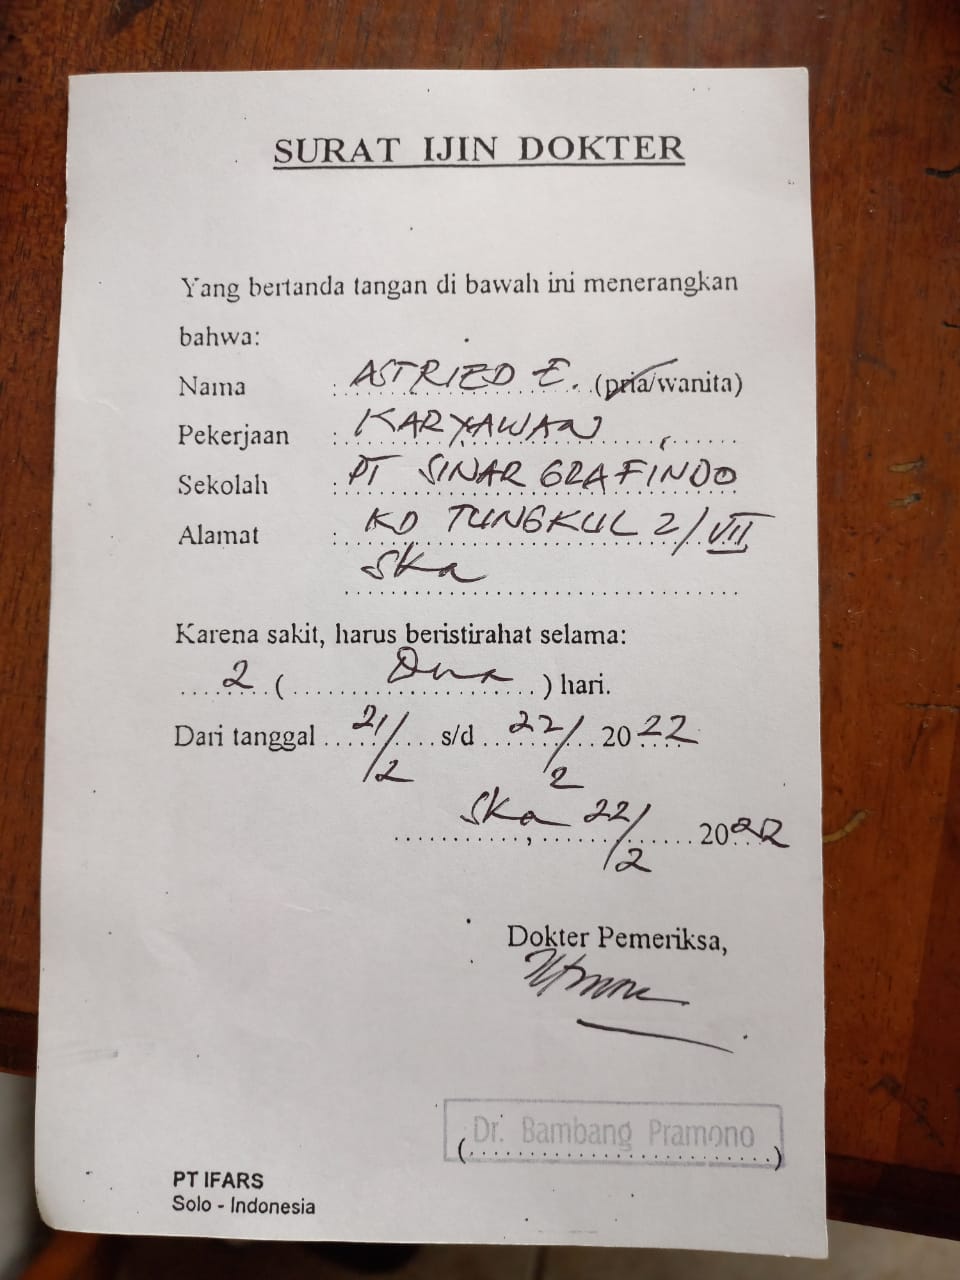 SURAT IJIN DOKTER
Yang bertanda tangan di bawah ini menerangkan
bahwa:
Nama : ASTRIED E. (pria/wanita)
Pekerjaan : KARYAWAN
Sekolah : PT SINAR GRAFINDO
Alamat : KD TUNGKUL 2/VII
Ska
Karena sakit, harus beristirahat selama:
2 ( Dua ) hari.
Dari tanggal 21/2 s/d 22/2 2022
Ska, 22/2 2022
Dokter Pemeriksa,
(Dr. Bambang Pramono)
PT IFARS
Solo - Indonesia